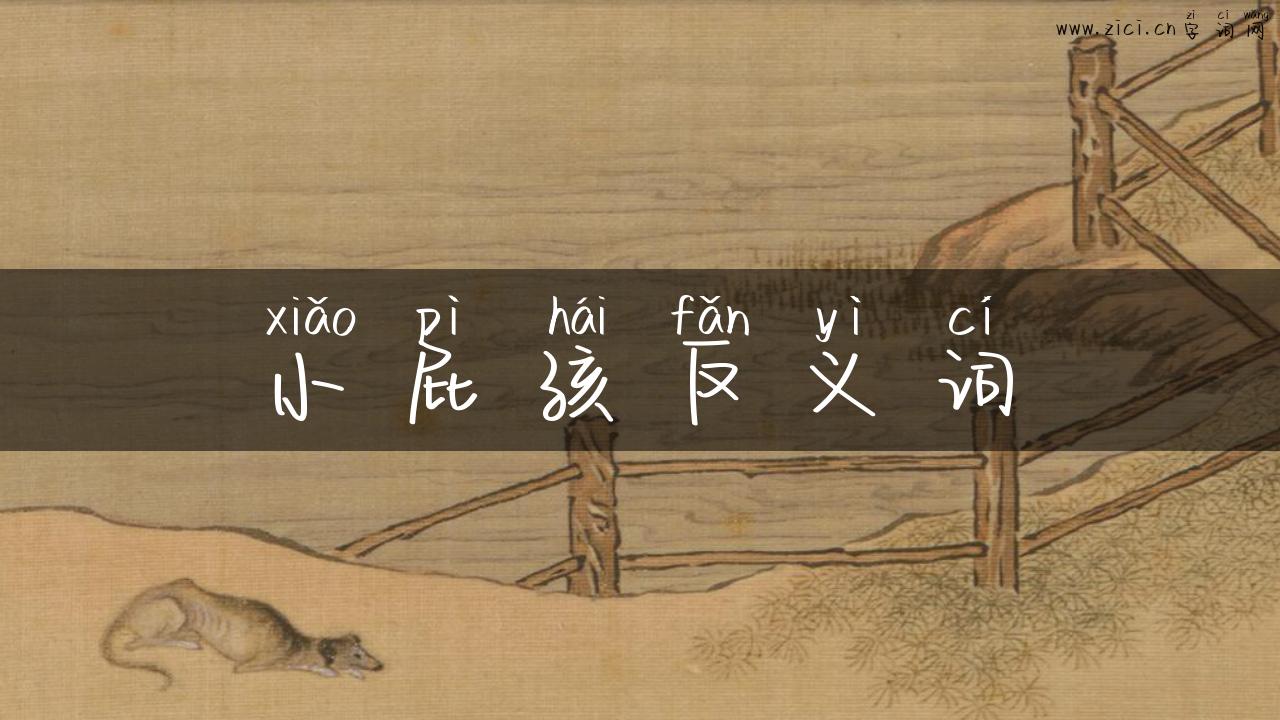 zì cí wǎng
www.zici.cn 字词网
xiǎo pì hái fǎn yì cí
小屁孩反义词